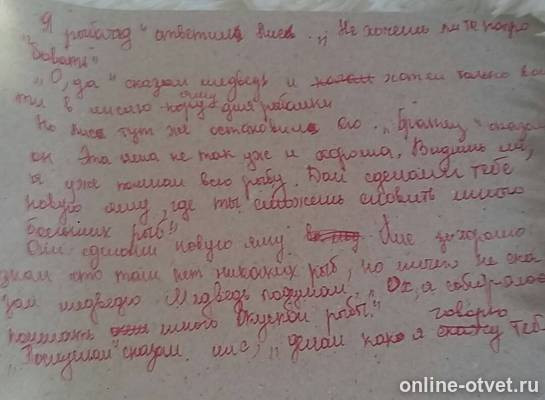 Я рыбачу" ответила лиса. „Не хочешь ли ты попро
бовать"
„О, да" сказал медведь и хотел только вой
яму
ти в лисью нору для рыбалки
Но лис тут же остановил его. „Братец" сказал
он Эта яма не так уж и хороша. Видишь ли,
я уже поймал всю рыбу. Дай сделаем тебе
новую яму, где ты сможешь словить много
больших рыб"
Они сделали новую яму Лис хорошо
знал что там нет никаких рыб, но ничего не ска
зал медведю Медведь подумал, „Ох, я собирался
поймать много вкусной рыбы."
говорю
„Послушай" сказал лис, „делай как я тебе
online-otvet.ru